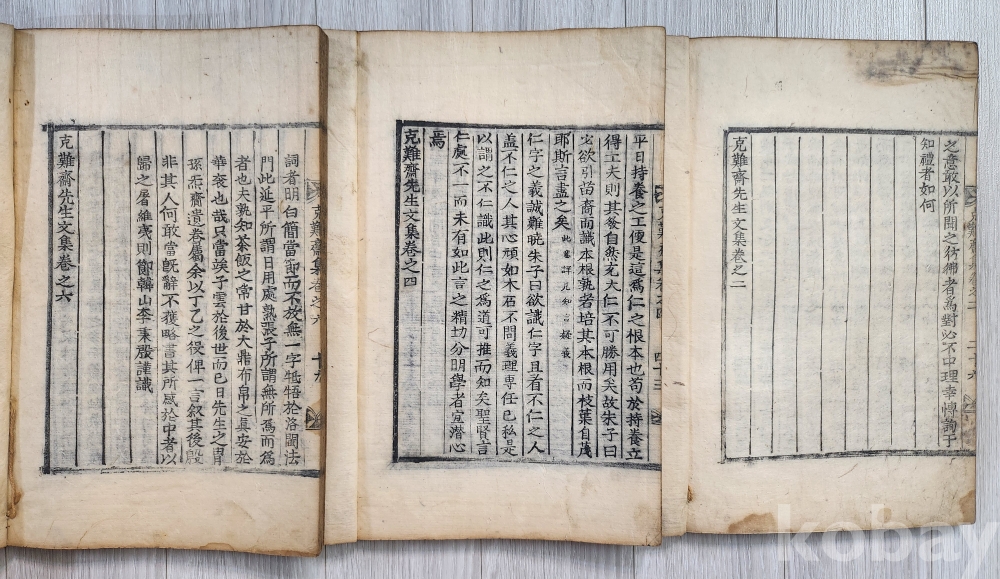 之意敢以所聞之彷彿者爲對必不中理幸博詢于
知禮者如何
克難齋先生文集卷之二
克難齋集卷之四 四十三
平日持養之工便是這爲仁之根本也苟於持養立
得工夫則其發自然充大仁不可勝用矣故朱子曰
必欲引苗裔而識本根孰若培其本根而枝葉自茂
耶斯言盡之矣 此詳見知言疑義
仁字之義誠難曉朱子曰欲識仁字且看不仁之人
盖不仁之人其心頑如木石不問義理專任已私是
以謂之不仁識此則仁之爲道可推而知矣聖賢言
仁處不一而未有如此言之精切分明學者宜潛心
焉
克難齋先生文集卷之四
克難齋集卷之六 十九
詞者明白簡當節而不放無一字牴牾於洛閩法
門此延平所謂日用處熟張子所謂無所爲而爲
者也夫孰知茶飯之常甘於大鼎布帛之眞安於
華袞也哉只當竢子雲於後世而已日先生之冑
孫炁齋遺卷屬余以丁乙之役俾一言叙其後殷
非其人何敢當旣辭不獲略書其所感於中者以
歸之屠維夷則節韓山李秉殷謹識
克難齋先生文集卷之六
kobay